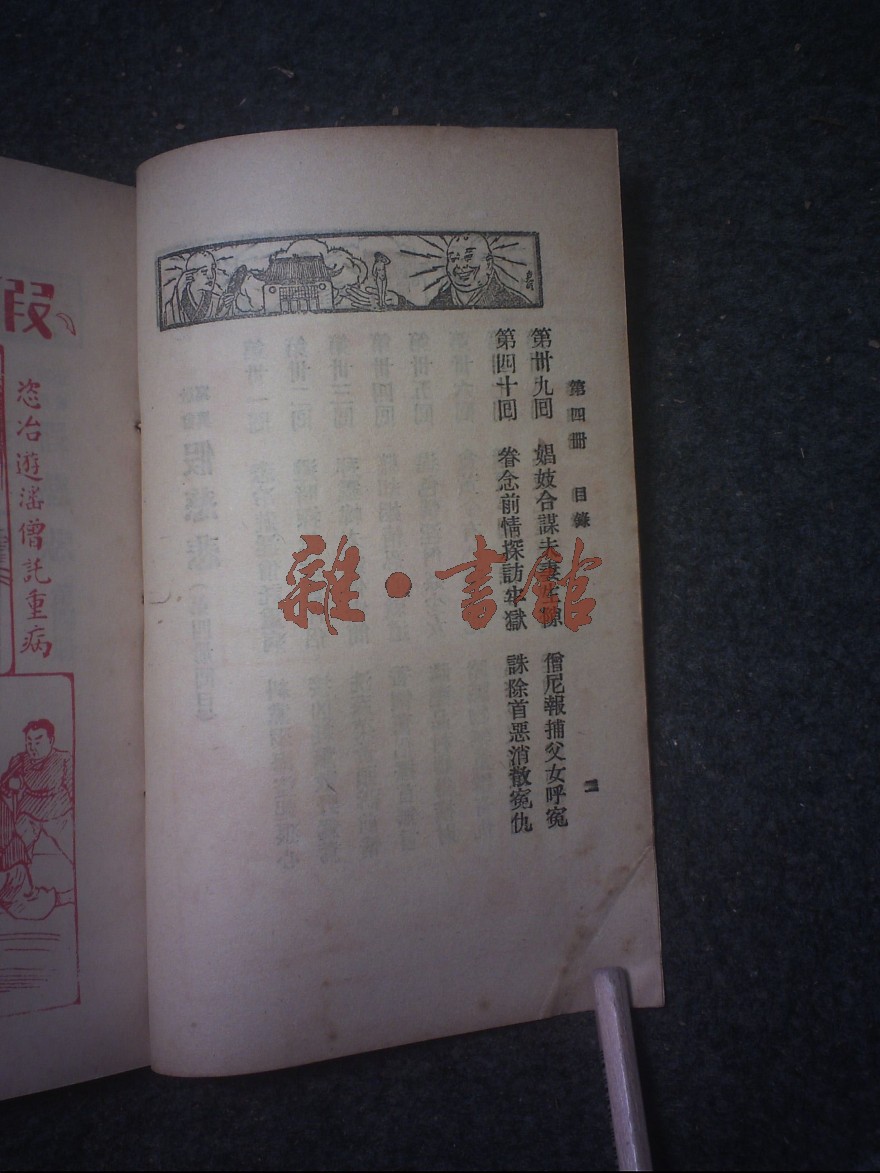 第四冊 目錄
二
第卅九回 娼妓合謀夫妻生隙 僧尼報捕父女呼寃
第四十回 眷念前情探訪牢獄 誅除首惡消散寃仇
雜·書館
假
恣冶遊濳僧託重病